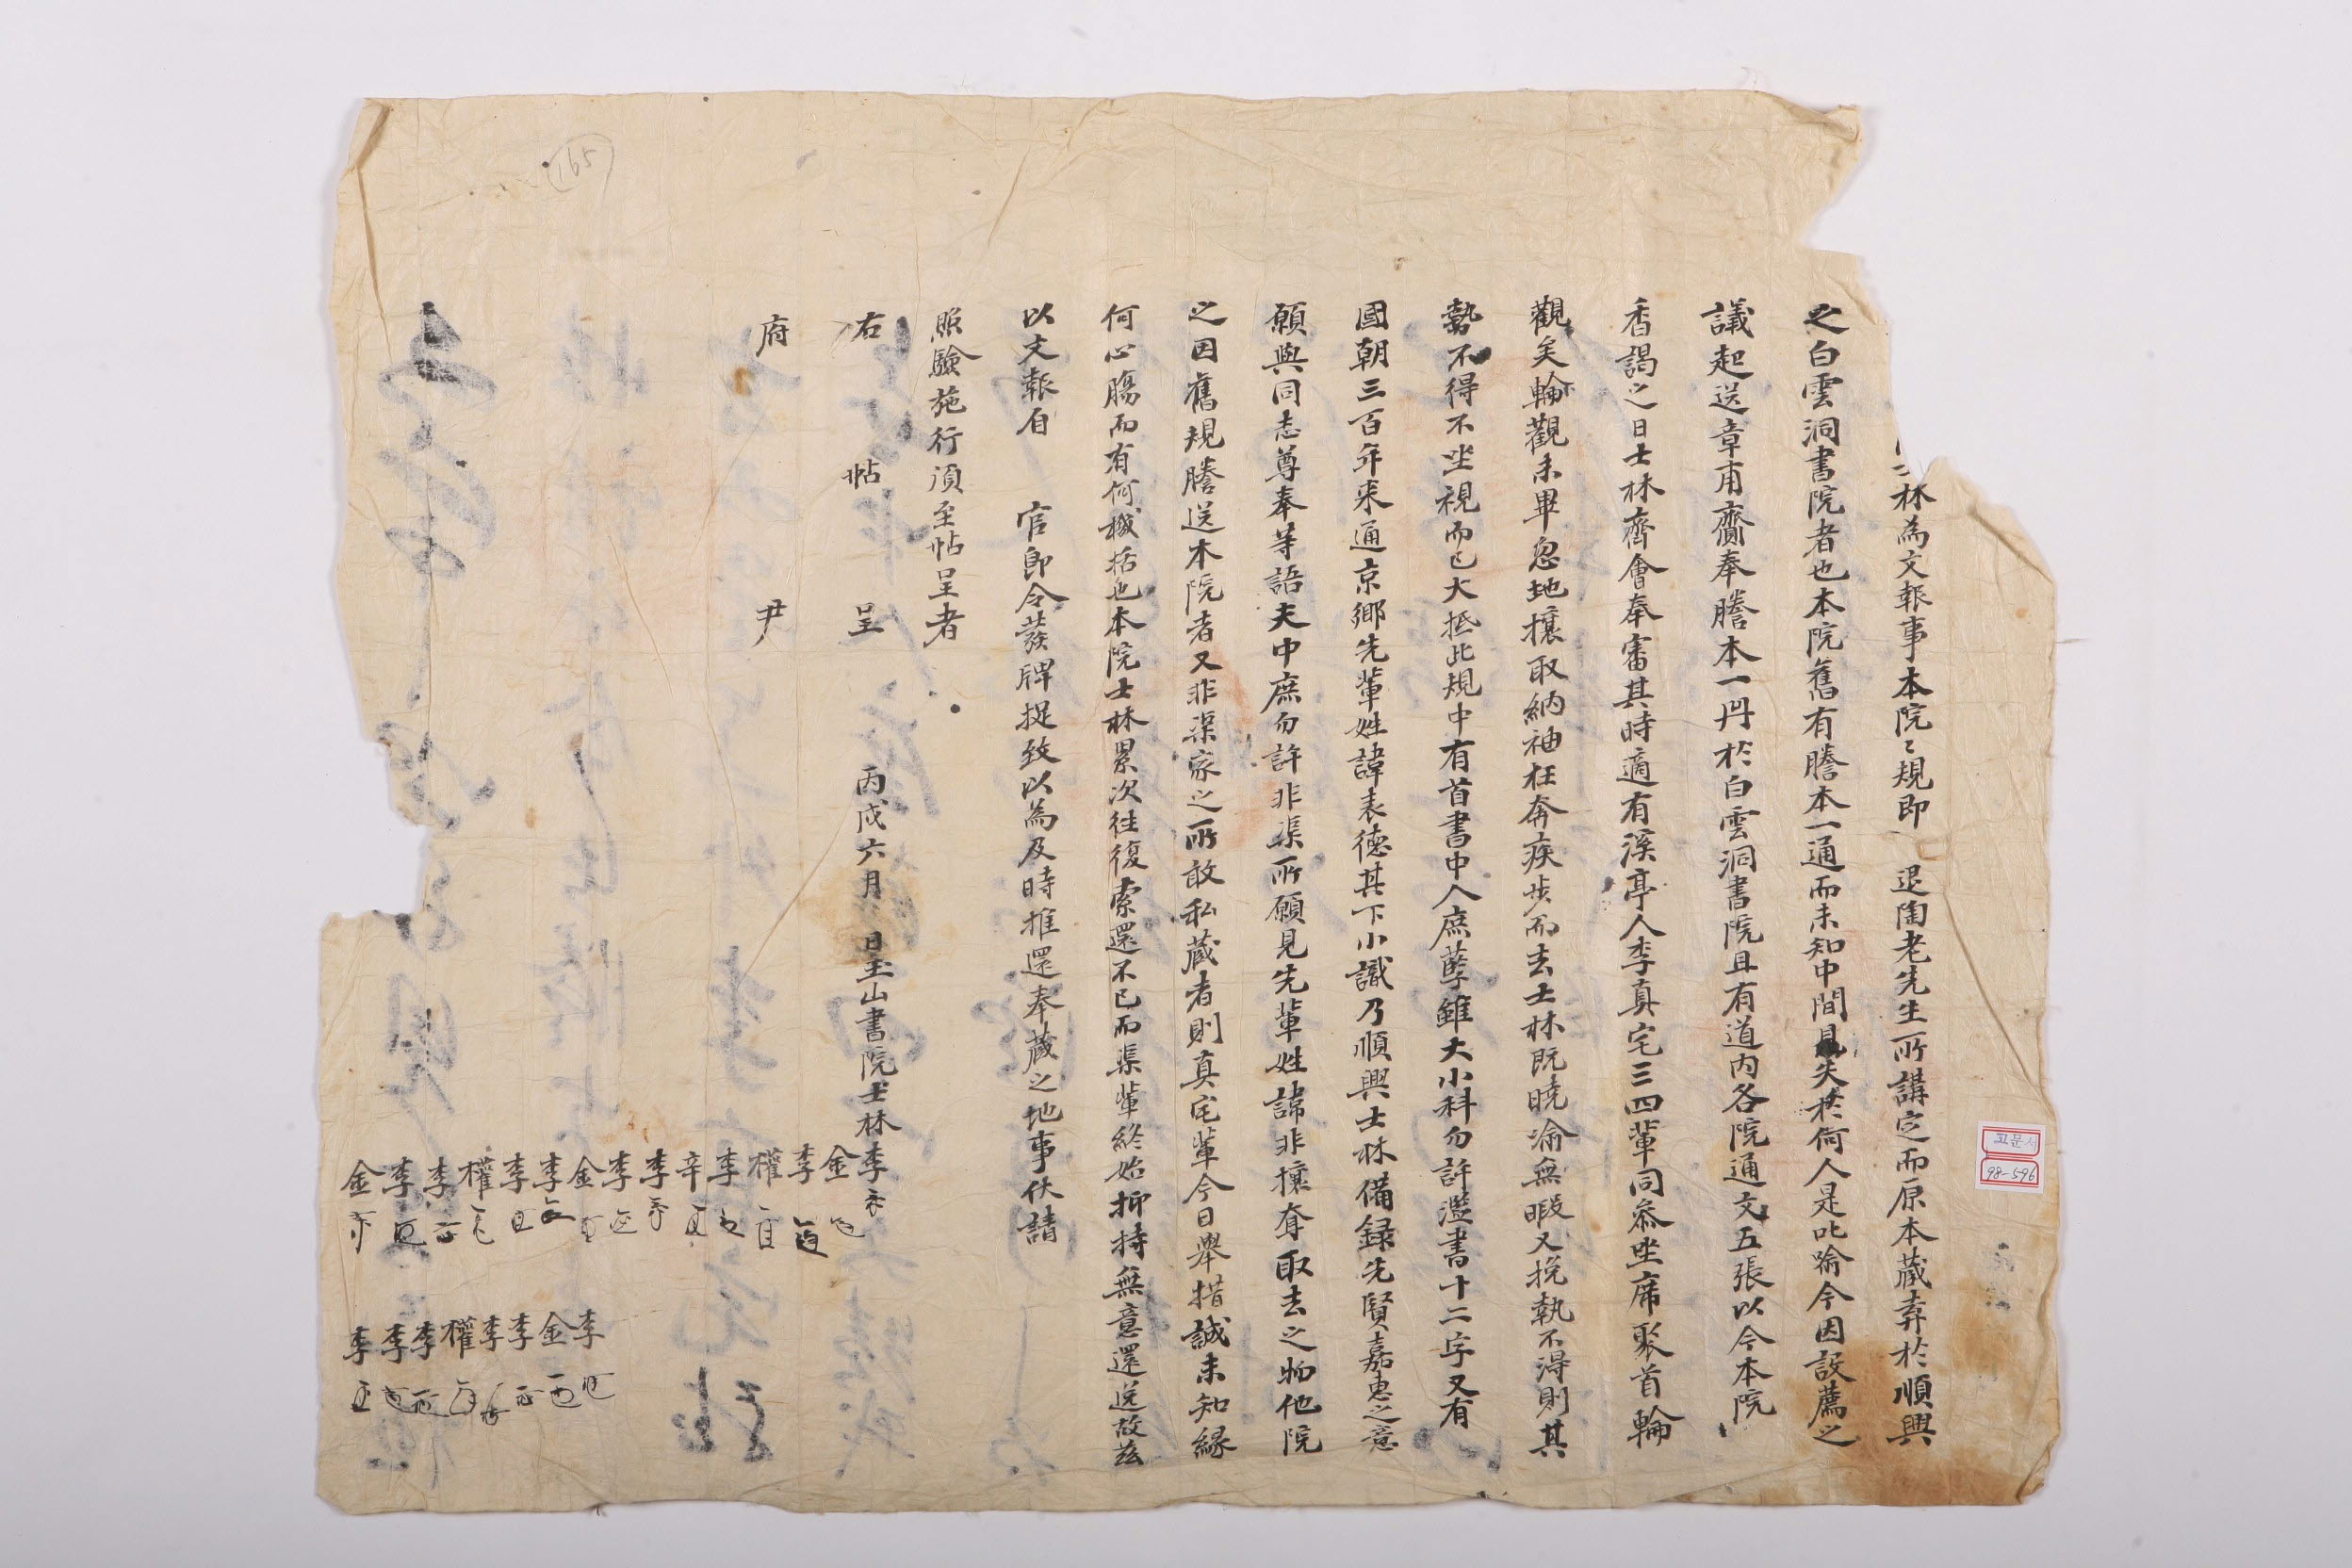 林為文報事本院〻規即 退陶老先生所講定而原本藏弆於順興
之白雲洞書院者也本院舊有謄本一通而未知中間見失於何人是如乎今因設薦之
議起送章甫齎奉謄本一冊於白雲洞書院且有道內各院通文五張以今本院
香謁之日士林齊會奉審其時適有溪亭人李真宅三四輩同參坐席聚首輪
觀矣輪觀未畢忽地攘取納袖狂奔疾步而去士林既曉喻無暇又挽執不得則其
勢不得不坐視而已大抵此規中有首書中人庶孽雖大小科勿許濫書十二字又有
國朝三百年來通京鄉先輩姓諱表德其下小識乃順興士林備錄先賢嘉惠之意
願與同志尊奉等語夫中庶勿許非渠所願見先輩姓諱非攘奪取去之物他院
之因舊規謄送本院者又非渠家之所敢私藏者則真宅輩今日舉措誠未知緣
何心腸而有何機括也本院士林累次往復索還不已而渠輩終始抑持無意還送故茲
以文報爲 官即令發牌捉致以為及時推還奉藏之地事伏請
照驗施行須至帖呈者
右 帖 呈
府 尹
丙戌六月 日玉山書院士林李
金
李
權
李
辛
李
李
金
李
李
權
李
李
金
李
金
李
李
權
李
李
李
165
고문서
98-596